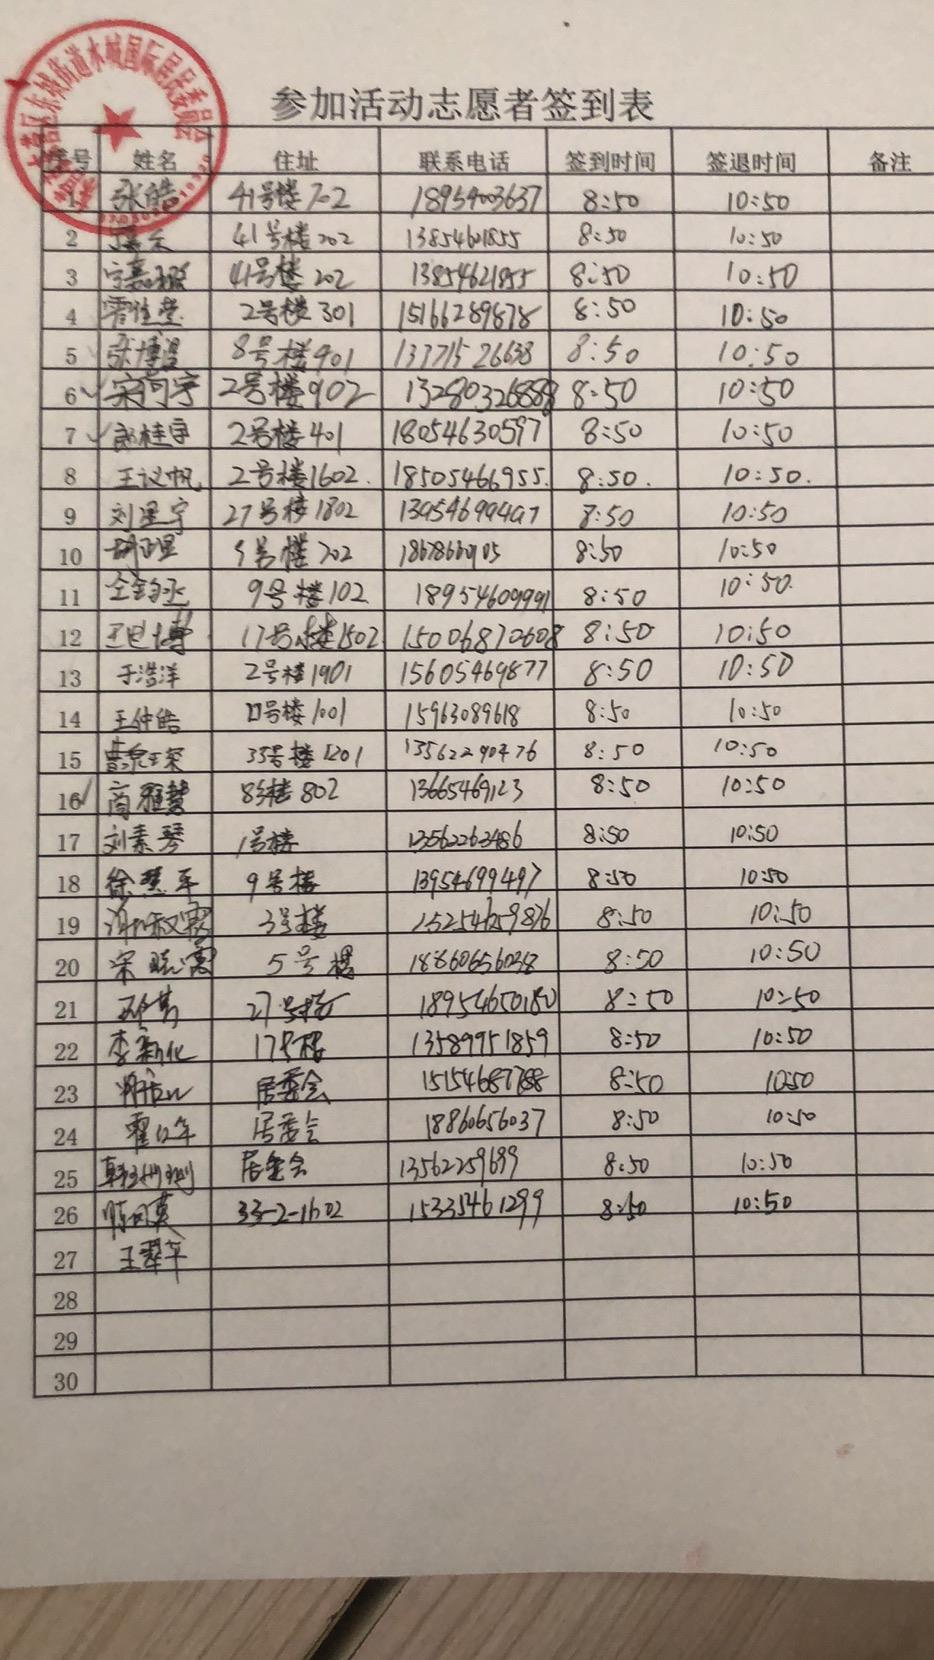 东城街道水城国际居民委员会
参加活动志愿者签到表
序号 姓名 住址 联系电话 签到时间 签退时间 备注
1 张皓 41号楼702 18954003637 8:50 10:50
2 41号楼202 13854621855 8:50 10:50
3 41号楼202 13854621855 8:50 10:50
4 霍佳莹 2号楼301 15166289878 8:50 10:50
5 张博涵 8号楼901 8:50 10:50
6 宋向宇 2号楼902 13280326888 8:50 10:50
7 桂宇 2号楼401 18054630597 8:50 10:50
8 王议帆 2号楼1602. 18505466955. 8:50. 10:50.
9 刘星宇 27号楼1802 8:50 10:50
10 号楼702 8:50 10:50
11 9号楼102 18954609991 8:50 10:50
12 博 17号楼1502 15006870608 8:50 10:50
13 于浩洋 2号楼1901 15605469877 8:50 10:50
14 王仲皓 号楼1001 15963089618 8:50 10:50
15 曹 35号楼1201 8:50 10:50
16 商雅慧 8号楼802 13665469123 8:50 10:50
17 刘素琴 1号楼 13562263486 8:50 10:50
18 徐慧军 9号楼 13954699497 8:50 10:50
19 3号楼 15254659876 8:50 10:50
20 宋晓霞 5号楼 8:50 10:50
21 27号楼 18954650180 8:50 10:50
22 李新化 17号楼 13589951859 8:50 10:50
23 居委会 15154687788 8:50 10:50
24 霍 居委会 18860656037 8:50 10:50
25 韩 居委会 13562259699 8:50 10:50
26 陈 英 33-2-1602 8:50 10:50
27 王翠平
28
29
30